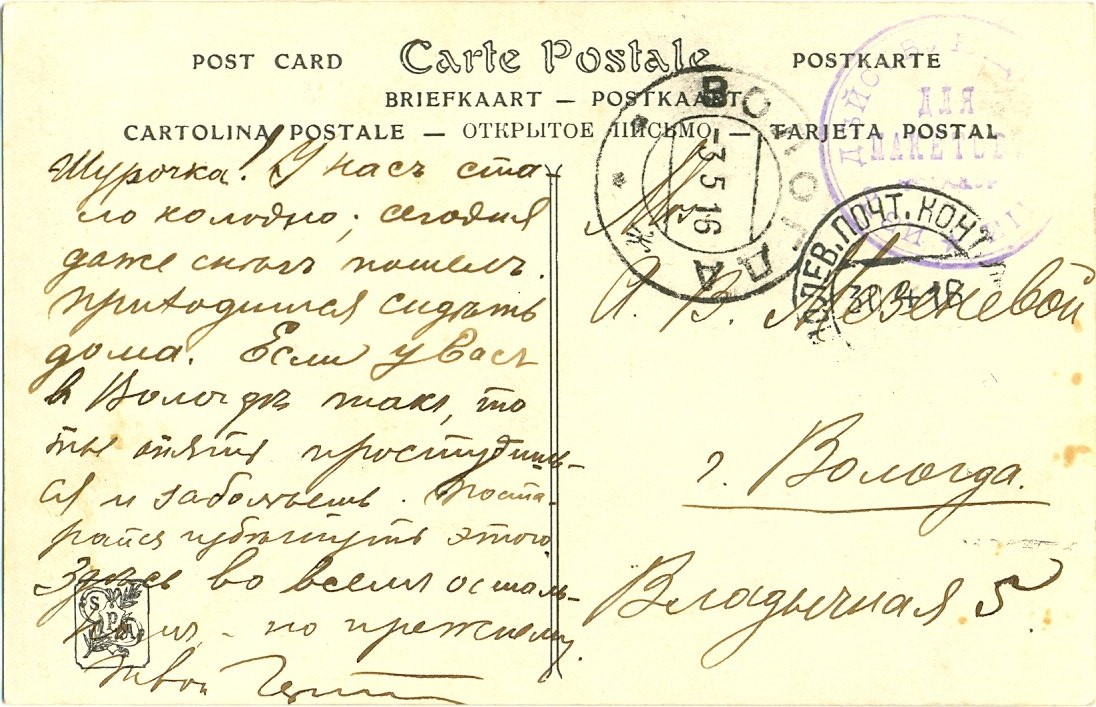 POST CARD Carte Postale POSTKARTE
BRIEFKAART — POSTKAART
CARTOLINA POSTALE — ОТКРЫТОЕ ПИСЬМО — TARJETA POSTAL
Шурочка! У насъ ста-
ло холодно; сегодня
даже снѣгъ пошелъ.
приходится сидѣть
дома. Если у Васъ
въ Вологдѣ такъ, то
ты опять простудишь-
ся и заболѣешь. Поста-
райся избѣгнуть этого.
Здѣсь во всемъ осталь-
номъ - по прежнему.
Твой
А. В.
г. Вологда.
Владычная 5
ВОЛОГДА
-3 5 16
ПОЛЕВ. ПОЧТ. КОНТ
30 4 16
ДЛЯ
ПАКЕТОВ
S
P